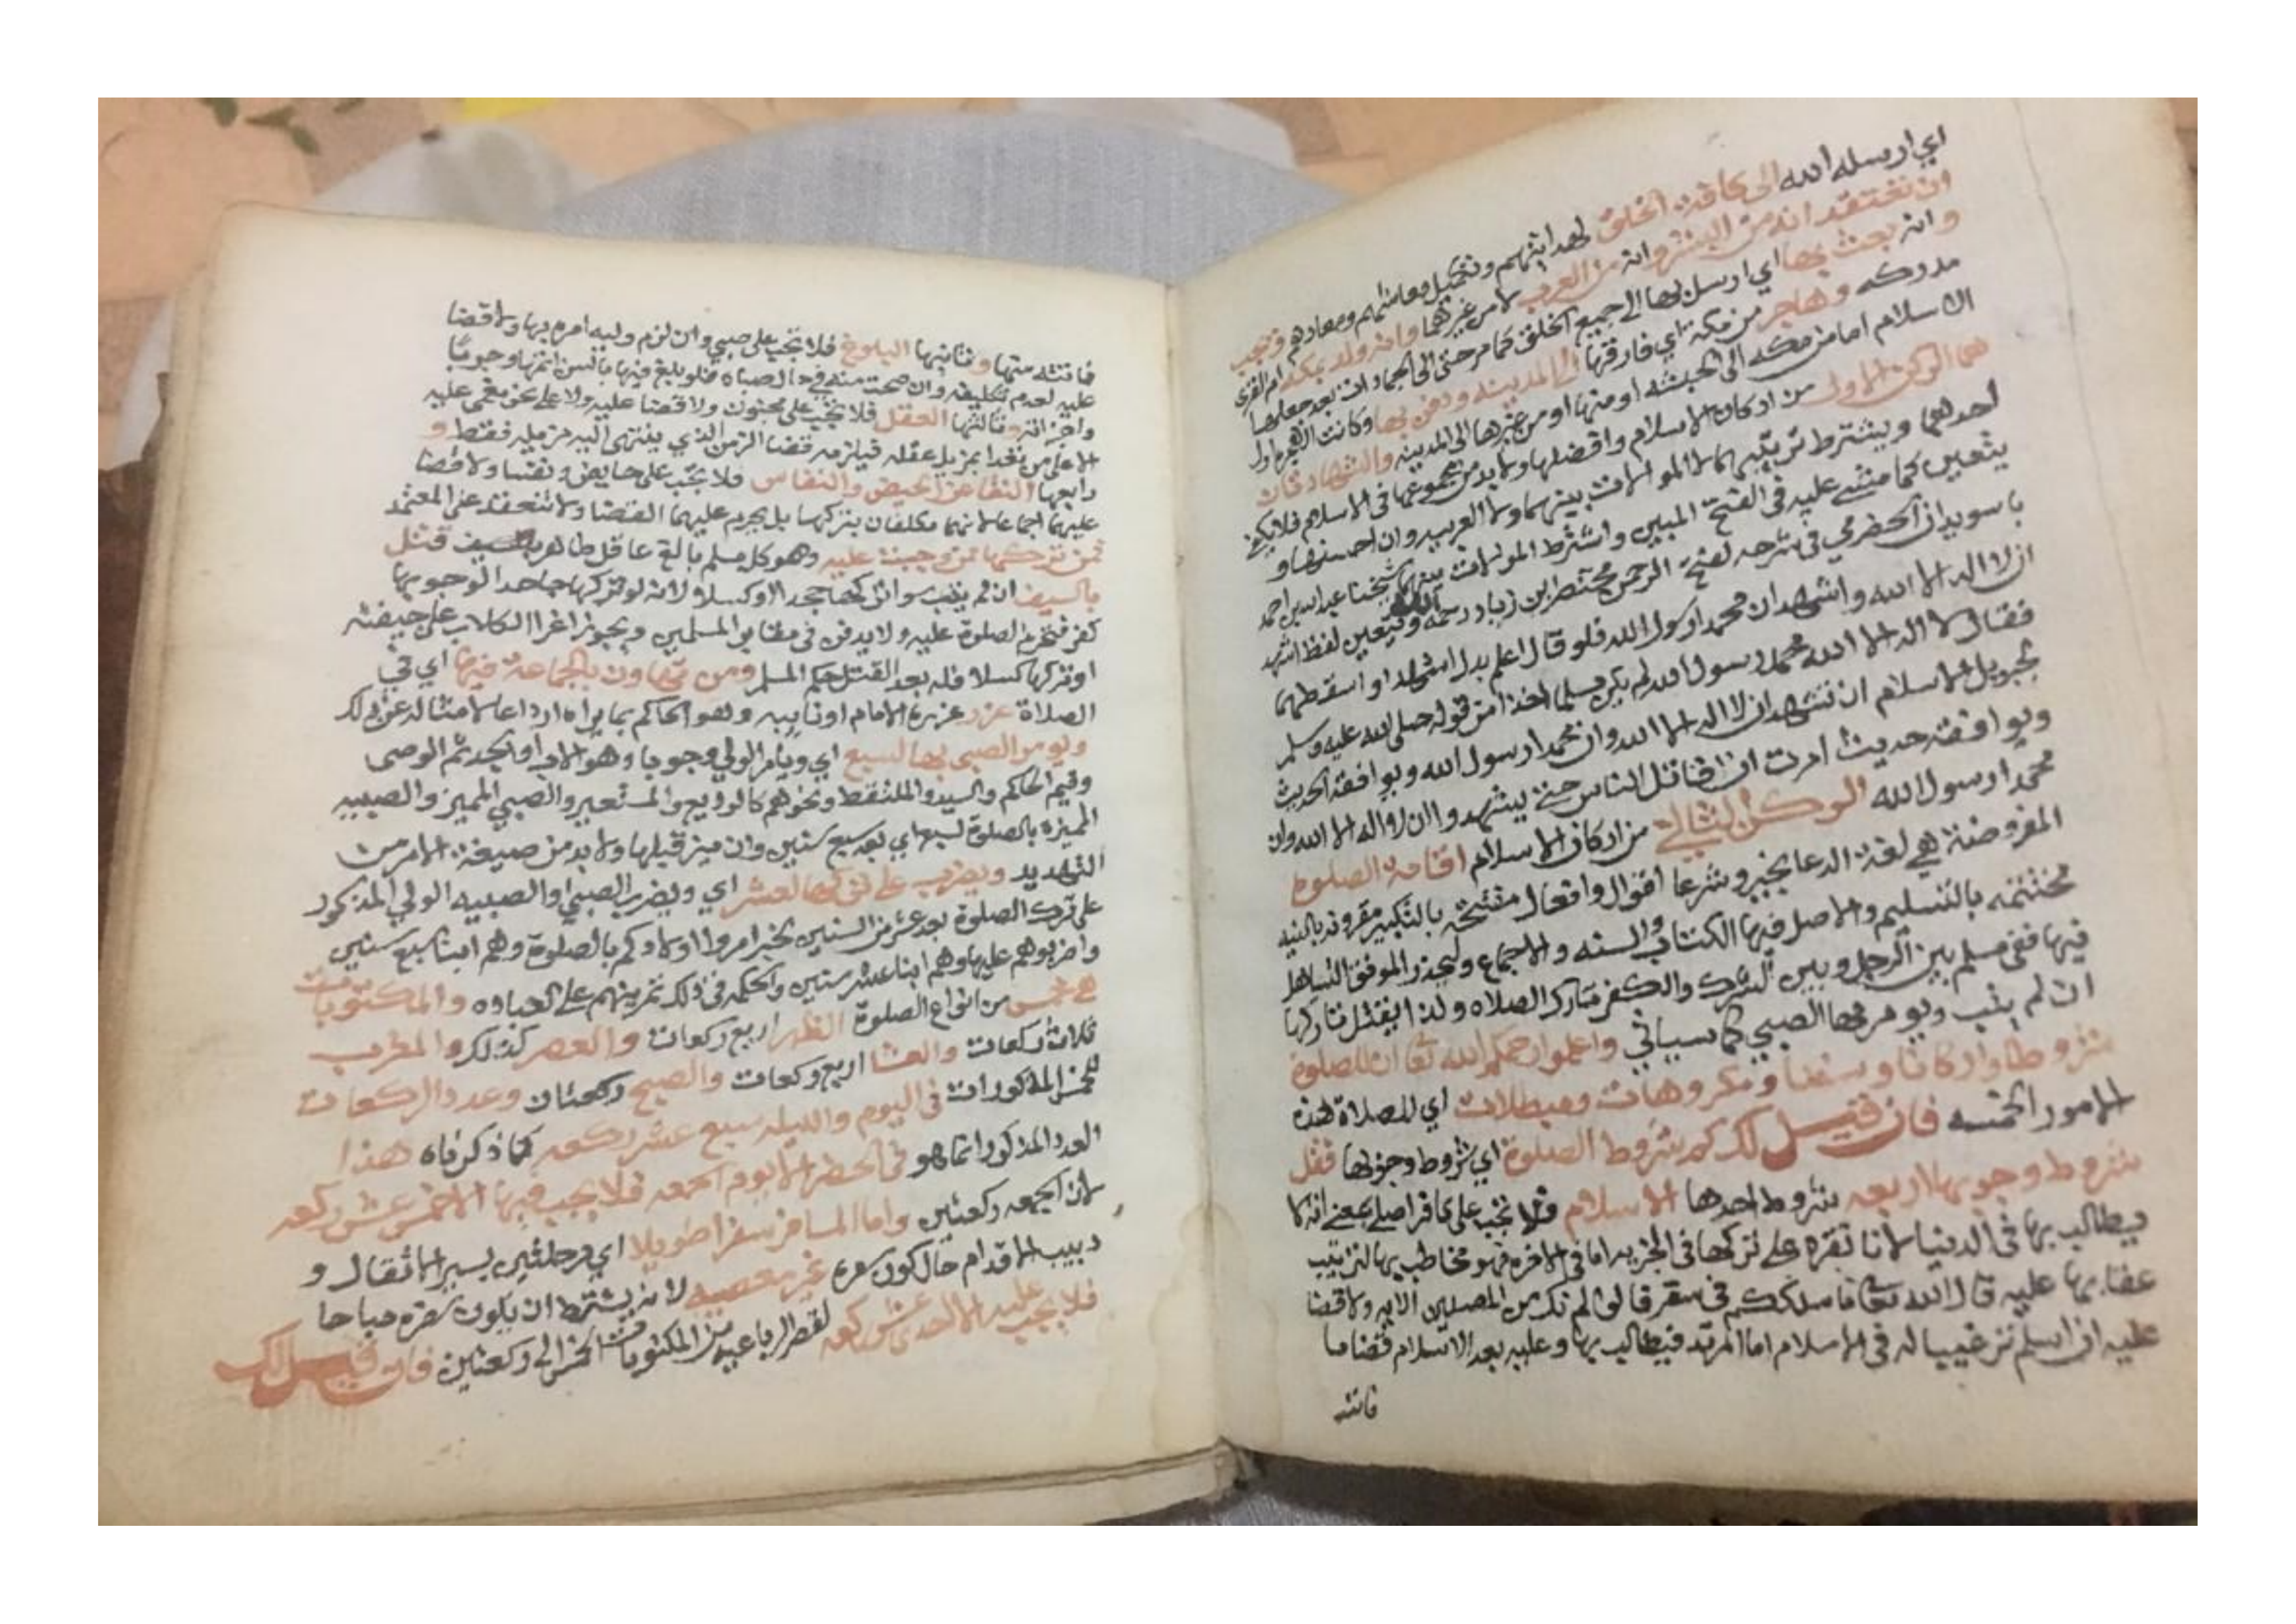 اي ارسله الله الى كافة الخلق لهدايتهم وتكميل معاشهم ومعادهم فيجب
ان نعتقد انه من البشر وانه من العرب لا من غيرهما وانه ولد بمكه ام القرى
وانه بعث بها اي ارسل بها الى جميع الخلق كما مر حتى الى الجماد ان بعد جعلها
مدركه وهاجر من مكة اي فارقها الى المدينه ودفن بها وكانت الهجره اول
الاسلام اما من مكه الى الحبشه او منها او من غيرها الى المدينه والشهادتان
هي الركن الاول من اركان الاسلام وافضلها ولا بد من مجموعها في الاسلام فلا يكفي
احدهما ويشترط ترتيبهما لا الموالات بينهما ولا العربيه وان احسنها و
يتعين كما مشى عليه في الفتح المبين واشترط الموالات بينهما شيخنا عبد الله بن احمد
باسويدان الحضرمي في شرحه لفتح الرحمن مختصر ابن زياد رحمه الله ويتعين لفظ اشهد
ان لا اله الا الله واشهد ان محمدا رسول الله فلو قال اعلم بدل اشهد او اسقطهما
فقال لا اله الا الله محمد رسول الله لم يكن مسلما اخذا من قوله صلى الله عليه وسلم
لجبريل الاسلام ان تشهد ان لا اله الا الله وان محمدا رسول الله ويوافقه الحديث
ويوافقه حديث امرت ان اقاتل الناس حتى يشهدوا ان لا اله الا الله وان
محمدا رسول الله الركن الثاني من اركان الاسلام اقامة الصلوة
المفروضة هي لغة الدعا بخير وشرعا اقوال وافعال مفتتحة بالتكبير مقرونة بالنيه
مختتمه بالتسليم والاصل فيها الكتاب والسنه والاجماع وليحذر الموفق التساهل
فيها ففي مسلم بين الرجل وبين الشرك والكفر تارك الصلاه ولذا يقتل تاركها
ان لم يتب ويومر بها الصبي كما سياتي واعلموا رحمكم الله تعا ان للصلوة
شروطا واركانا وسننا ومكروهات ومبطلات اي للصلاة هذه
الامور الخمسه فان قيل لك كم شروط الصلوة اي شروط وجوبها فقل
شروط وجوبها اربعه شروط احدها الاسلام فلا تجب على كافر اصلي بمعنى انه لا
يطالب بها في الدنيا لانا نقره على تركها في الجزيه اما في الاخره فهو مخاطب بها لترتيب
عقابها عليه قال الله تعا ما سلككم في سقر قالوا لم نك من المصلين الايه ولا قضا
عليه ان اسلم ترغيبا له في الاسلام اما المرتد فيطالب بها وعليه بعد الاسلام قضا ما
فاتته
فاتته منها وثانيها البلوغ فلا تجب على صبي وان لزم وليه امره بها ولا قضا
عليه لعدم تكليفه وان صحت منه في حال صباه فلو بلغ فيها بالسن اتمها وجوبا
واجزاته وثالثها العقل فلا تجب على مجنون ولا قضا عليه ولا على نحو مغمى عليه
الا على من تعدا بمزيل عقله فيلزمه قضا الزمن الذي ينتهي اليه مزيله فقط و
رابعها النقا عن الحيض والنفاس فلا تجب على حايض ونفسا ولا قضا
عليهما اجماعا لانهما مكلفان بتركها بل يحرم عليهما القضا ولا تنعقد على المعتمد
فمن تركها ممن وجبت عليه وهو كل مسلم بالغ عاقل طاهر قتل
بالسيف ان لم يتب سوا تركها جحدا او كسلا لانه لو تركها جاحدا لوجوبها
كفر فتحرم الصلوة عليه ولا يدفن في مقابر المسلمين ويجوز اغرا الكلاب على جيفته
او تركها كسلا فله بعد القتل حكم المسلم ومن تهاون بالجماعة فيها اي في
الصلاة عزر عزره الامام او نايبه وهو الحاكم بما يراه ارداعا لامثاله عن ذلك
ويومر الصبي بها لسبع اي ويامر الولي وجوبا وهو الاب او الجد ثم الوصي
وقيم الحاكم والسيد والملتقط ونحوهم كالوديع والمستعير والصبي المميز والصبيه
المميزه بالصلوة لسبع اي بعد سبع سنين وان ميز قبلها ولا بد من صيغة الامر من
التهديد ويضرب على تركها لعشر اي ويضرب الصبي او الصبيه الولي المذكور
على ترك الصلوة بعد عشر من السنين لخبر امروا اولادكم بالصلوة وهم ابنا سبع سنين
واضربوهم عليها وهم ابنا عشر سنين والحكمه في ذلك تمرينهم على العباده والمكتوبات
هي خمس من انواع الصلوة الظهر اربع ركعات والعصر كذلك والمغرب
ثلاث ركعات والعشا اربع ركعات والصبح ركعتان وعدد الركعات
للخمس المذكورات في اليوم والليله سبع عشر ركعه كما ذكرناه هذا
العدد المذكور انما هو في الحضر الا يوم الجمعه فلا يجب فيها الا خمس عشر ركعه
لان الجمعه ركعتين واما المسافر سفرا طويلا اي مرحلتين بسير الاثقال و
دبيب الاقدام حال كون سفره غير معصيه لانه يشترط ان يكون سفره مباحا
فلا يجب عليه الا احدى عشر ركعه لقصر الرباعيه من المكتوبات الخمس الى ركعتين فان قيل لك